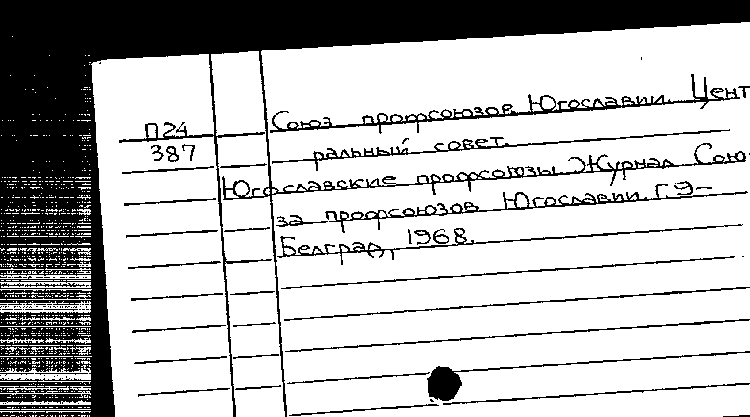 П24 Союз профсоюзов Югославии. Цент
387 ральный совет.
Югославские профсоюзы. Журнал Сою-
за профсоюзов Югославии. Г. 9-
Белград, 1968.